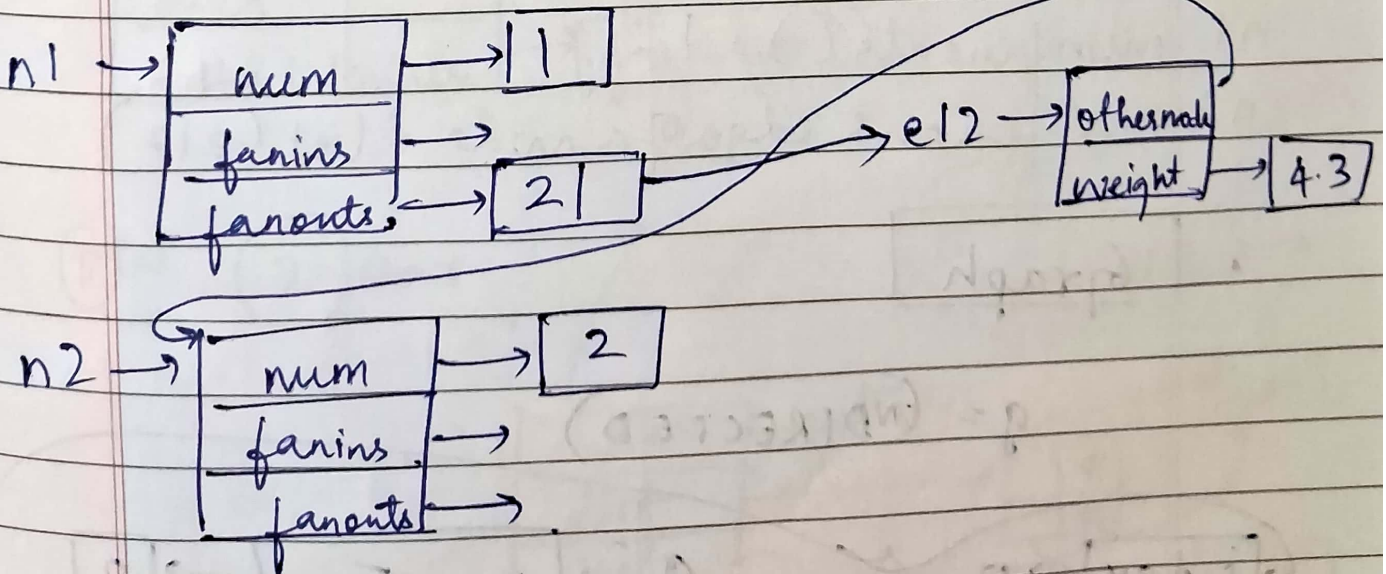 n1 → num → 1
fanins →
fanouts → 2 → e12 → othernode
weight → 4.3
n2 → num → 2
fanins →
fanouts →